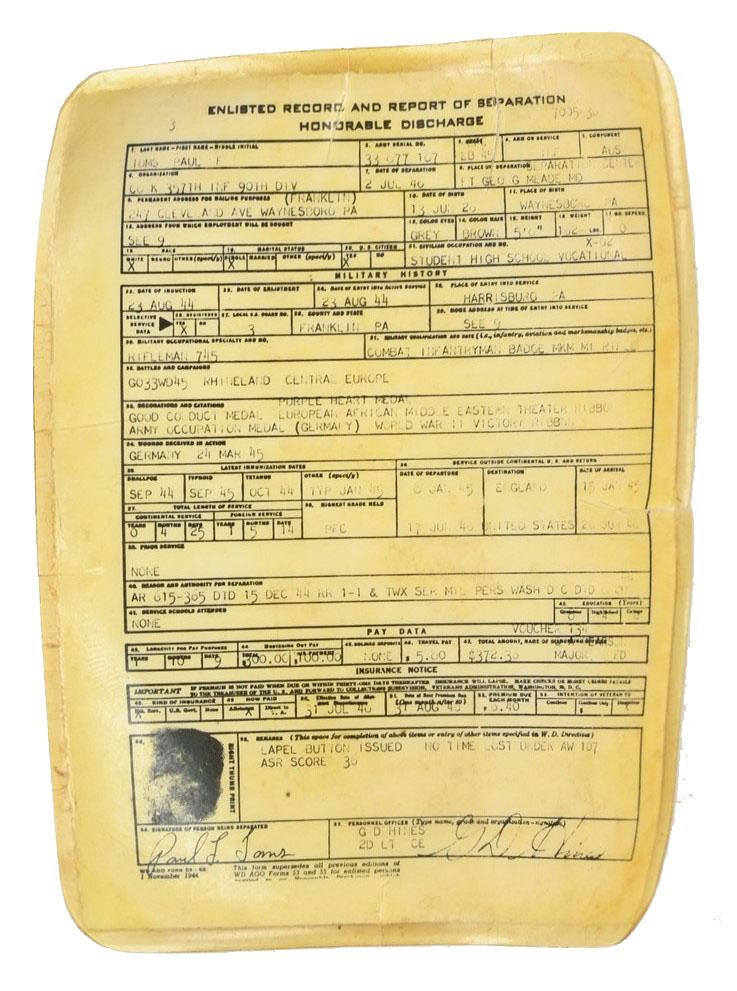 ENLISTED RECORD AND REPORT OF SEPARATION
3 HONORABLE DISCHARGE
1. LAST NAME - FIRST NAME - MIDDLE INITIAL 2. ARMY SERIAL NO. 3. GRADE 4. ARM OR SERVICE 5. COMPONENT
TOMS PAUL F 33 877 167 AUS
6. ORGANIZATION 7. DATE OF SEPARATION 8. PLACE OF SEPARATION SEPARATION CENTER
CO K 357TH INF 90TH DIV 2 JUL 46 FT GEO G MEADE MD
9. PERMANENT ADDRESS FOR MAILING PURPOSES (FRANKLIN) 10. DATE OF BIRTH 11. PLACE OF BIRTH
247 CLEVELAND AVE WAYNESBORO PA WAYNESBORO PA
12. ADDRESS FROM WHICH EMPLOYMENT WILL BE SOUGHT 13. COLOR EYES 14. COLOR HAIR 15. HEIGHT 16. WEIGHT 17. NO. DEPEND.
SEE 9 GREY BROWN LBS. 0
18. RACE 19. MARITAL STATUS 20. U.S. CITIZEN 21. CIVILIAN OCCUPATION AND NO. X-02
WHITE NEGRO OTHER (specify) SINGLE MARRIED OTHER (specify) YES NO
X X X STUDENT HIGH SCHOOL VOCATIONAL
MILITARY HISTORY
22. DATE OF INDUCTION 23. DATE OF ENLISTMENT 24. DATE OF ENTRY INTO ACTIVE SERVICE 25. PLACE OF ENTRY INTO SERVICE
23 AUG 44 23 AUG 44 HARRISBURG PA
SELECTIVE SERVICE DATA 26. REGISTERED YES NO 27. LOCAL S.S. BOARD NO. 28. COUNTY AND STATE 29. HOME ADDRESS AT TIME OF ENTRY INTO SERVICE
X 3 FRANKLIN PA SEE 9
30. MILITARY OCCUPATIONAL SPECIALTY AND NO. 31. MILITARY QUALIFICATION AND DATE (i.e., infantry, aviation and marksmanship badges, etc.)
RIFLEMAN 745 COMBAT INFANTRYMAN BADGE MKM M1 RIFLE
32. BATTLES AND CAMPAIGNS
GO33WD45 RHINELAND CENTRAL EUROPE
33. DECORATIONS AND CITATIONS PURPLE HEART MEDAL
GOOD CONDUCT MEDAL EUROPEAN AFRICAN MIDDLE EASTERN THEATER RIBBON
ARMY OCCUPATION MEDAL (GERMANY) WORLD WAR II VICTORY RIBBON
34. WOUNDS RECEIVED IN ACTION
GERMANY 24 MAR 45
35. LATEST IMMUNIZATION DATES 36. SERVICE OUTSIDE CONTINENTAL U.S. AND RETURN
SMALLPOX TYPHOID TETANUS OTHER (specify) DATE OF DEPARTURE DESTINATION DATE OF ARRIVAL
SEP 44 SEP 45 OCT 44 TYP JAN 45 JAN 45 ENGLAND 15 JAN 45
37. TOTAL LENGTH OF SERVICE 38. HIGHEST GRADE HELD
CONTINENTAL SERVICE FOREIGN SERVICE
YEARS MONTHS DAYS YEARS MONTHS DAYS
0 4 25 1 5 14 PFC 17 JUN 46 UNITED STATES JUN 46
39. PRIOR SERVICE
NONE
40. REASON AND AUTHORITY FOR SEPARATION
AR 615-365 DTD 15 DEC 44 RR 1-1 & TWX SER MIL PERS WASH D C DTD
41. SERVICE SCHOOLS ATTENDED 42. EDUCATION (Years)
NONE Grammar High School College
PAY DATA VOUCHER
43. LONGEVITY FOR PAY PURPOSES 44. MUSTERING OUT PAY 45. SOLDIER DEPOSITS 46. TRAVEL PAY 47. TOTAL AMOUNT, NAME OF DISBURSING OFFICER
YEARS MONTHS DAYS TOTAL THIS PAYMENT
1 10 9 300.00 100.00 NONE 5.00 MAJOR FD
INSURANCE NOTICE
IMPORTANT IF PREMIUM IS NOT PAID WHEN DUE OR WITHIN THIRTY-ONE DAYS THEREAFTER, INSURANCE WILL LAPSE. MAKE CHECKS OR MONEY ORDERS PAYABLE
TO THE TREASURER OF THE U. S. AND FORWARD TO COLLECTIONS SUBDIVISION, VETERANS ADMINISTRATION, WASHINGTON, D. C.
48. KIND OF INSURANCE 49. HOW PAID 50. Effective Date of Allotment Discontinuance 51. Date of Next Premium Due (One month after 50) 52. PREMIUM DUE EACH MONTH 53. INTENTION OF VETERAN TO
Nat. Serv. U.S. Govt. None Allotment Direct to V.A. Continue Continue Only Discontinue
X X 31 JUL 46 31 AUG 46 6.40 $
54.
RIGHT THUMB PRINT
55. REMARKS (This space for completion of above items or entry of other items specified in W. D. Directives)
LAPEL BUTTON ISSUED NO TIME LOST UNDER AW 107
ASR SCORE
56. SIGNATURE OF PERSON BEING SEPARATED 57. PERSONNEL OFFICER (Type name, grade and organization - signature)
G D HINES
2D LT CE
Paul F. Toms G D Hines
WD AGO FORM 53-55
1 November 1944
This form supersedes all previous editions of
WD AGO Forms 53 and 55 for enlisted persons